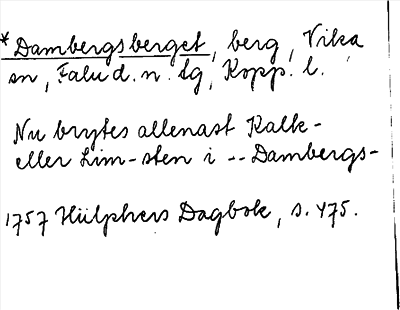 *Dambergsberget, berg, Vika
sn, Falu d. n. tg, Kopp. l.
Nu brytes allenast Kalk-
eller Lim-sten i -- Dambergs-
1757 Hülphers Dagbok, s. 475.